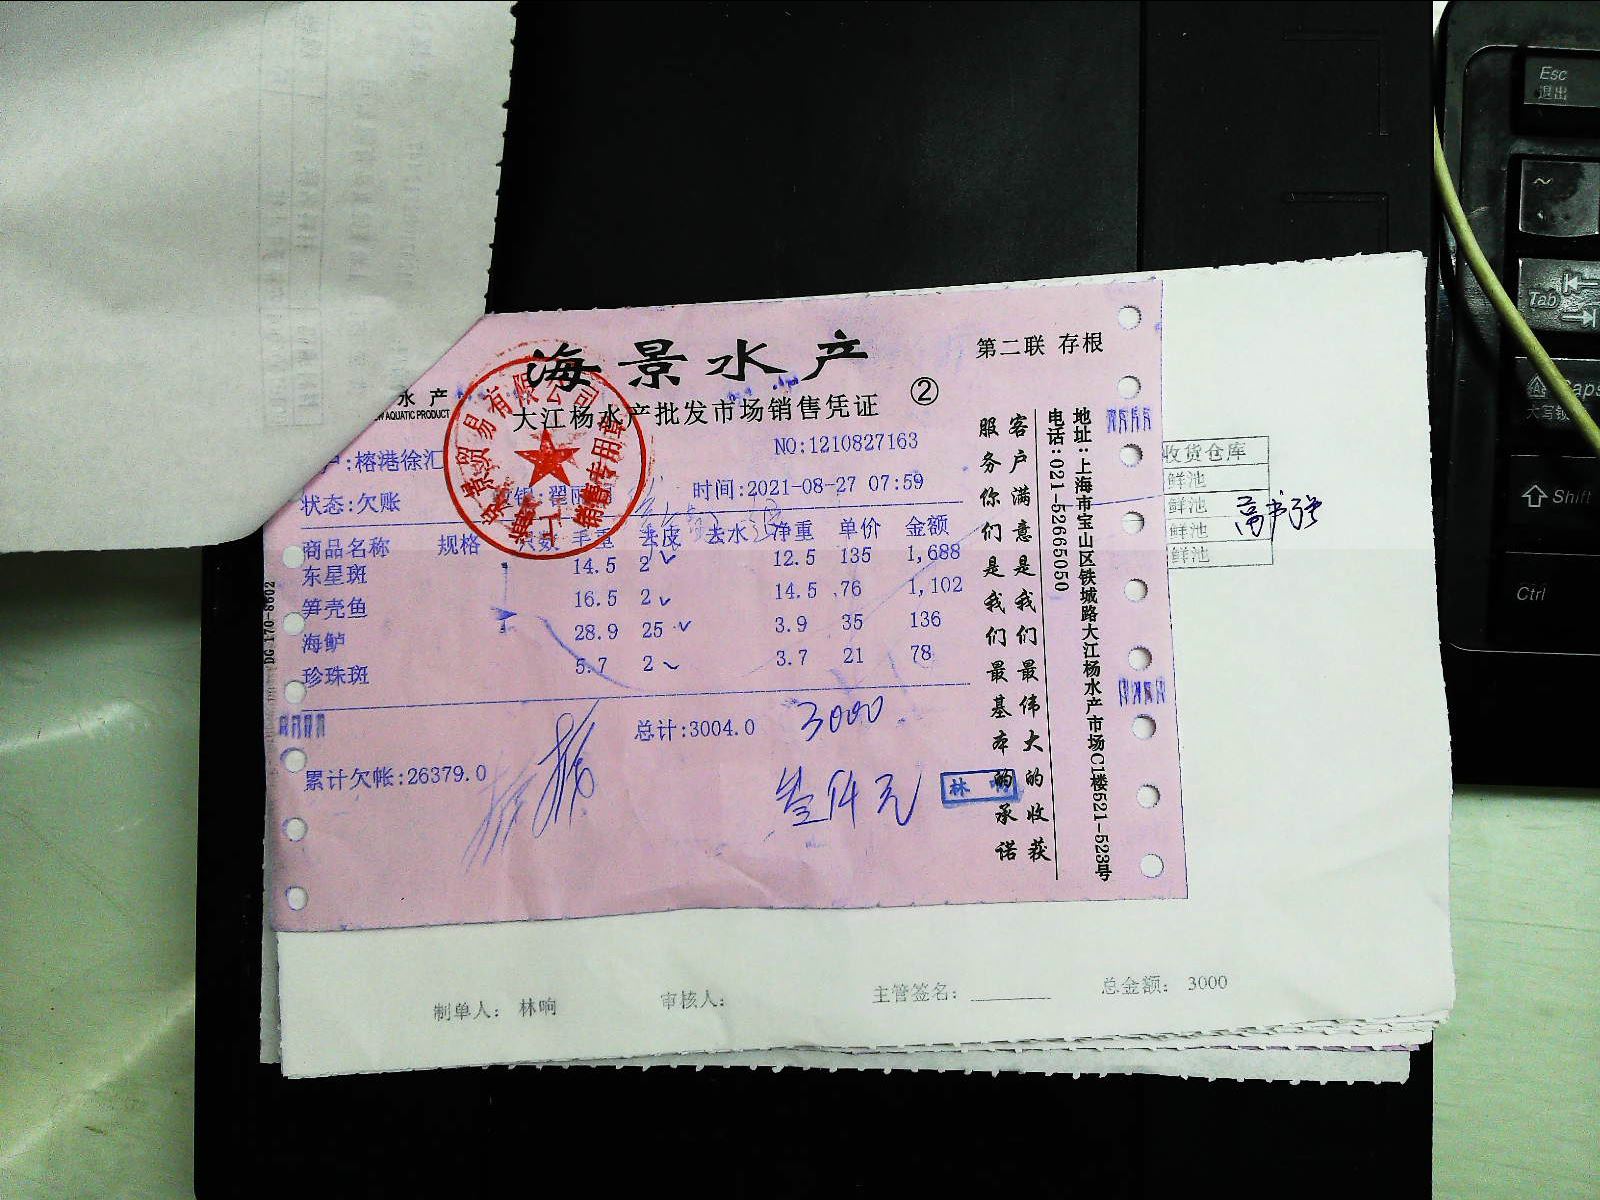 海景水产
第二联 存根
水产
AQUATIC PRODUCT
大江杨水产批发市场销售凭证
②
NO:1210827163
:榕港徐汇
状态:欠账
时间:2021-08-27 07:59
商品名称 规格 只数 毛重 去皮 去水 净重 单价 金额
东星斑 14.5 2 12.5 135 1,688
笋壳鱼 16.5 2 14.5 76 1,102
海鲈 28.9 25 3.9 35 136
珍珠斑 5.7 2 3.7 21 78
总计:3004.0
3000
累计欠帐:26379.0
叁仟元
林响
客户满意是我们最伟大的收获
服务你们是我们最基本的承诺
地址:上海市宝山区铁城路大江杨水产市场C1楼521-523号
电话:021-52665050
DG 170-8602
贸易有限公司
销售专用章
收货仓库
鲜池
鲜池
鲜池
鲜池
制单人: 林响
审核人:
主管签名:
总金额: 3000
Esc
退出
~
Tab
Caps
大写锁
Shift
Ctrl